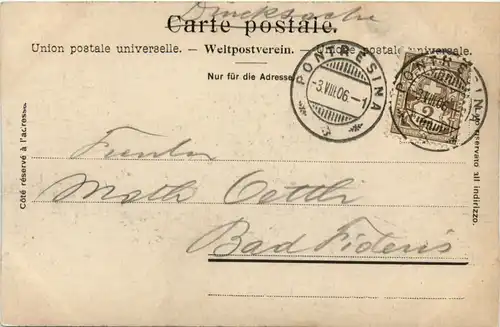 Drucksache
Carte postale.
Union postale universelle. — Weltpostverein. — Unione postale universale.
Nur für die Adresse
PONTRESINA
-3.VIII.06.-1
PONTRESINA
-3.VIII.06.
2
Côté réservé à l'adresse.
Lato riservato all indirizzo.
Math Oettli
Bad Fideris